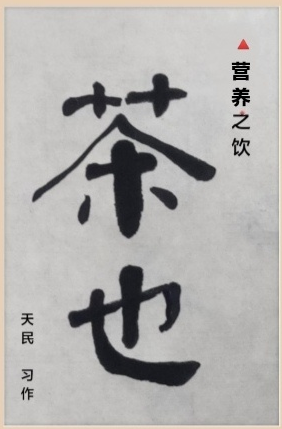 营养之饮
茶也
天民 习作